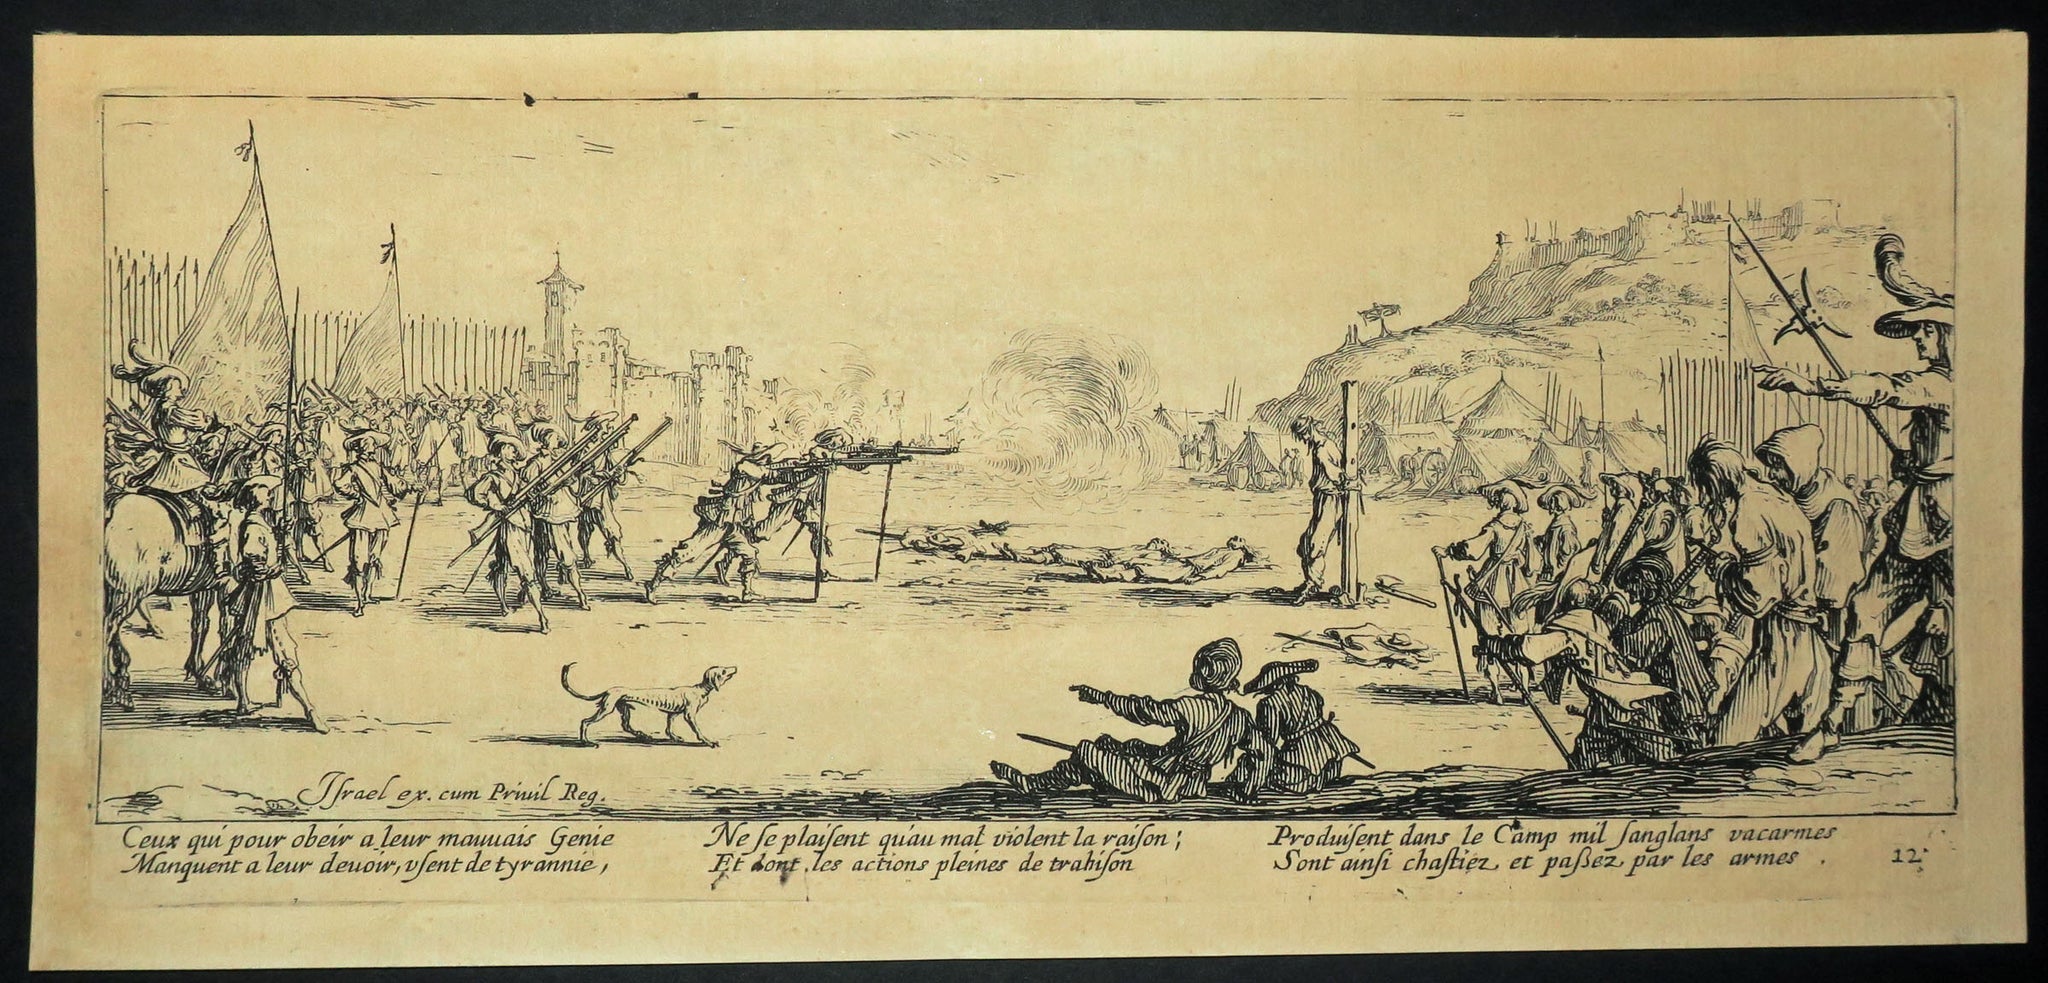 Iſrael ex. cum Priuil Reg.
Ceux qui pour obeir a leur mauuais Genie
Manquent a leur deuoir, vſent de tyrannie,
Ne ſe plaiſent qu'au mal violent la raiſon;
Et dont les actions pleines de trahiſon
Produiſent dans le Camp mil ſanglans vacarmes
Sont ainſi chaſtiez et paſſez par les armes .
12